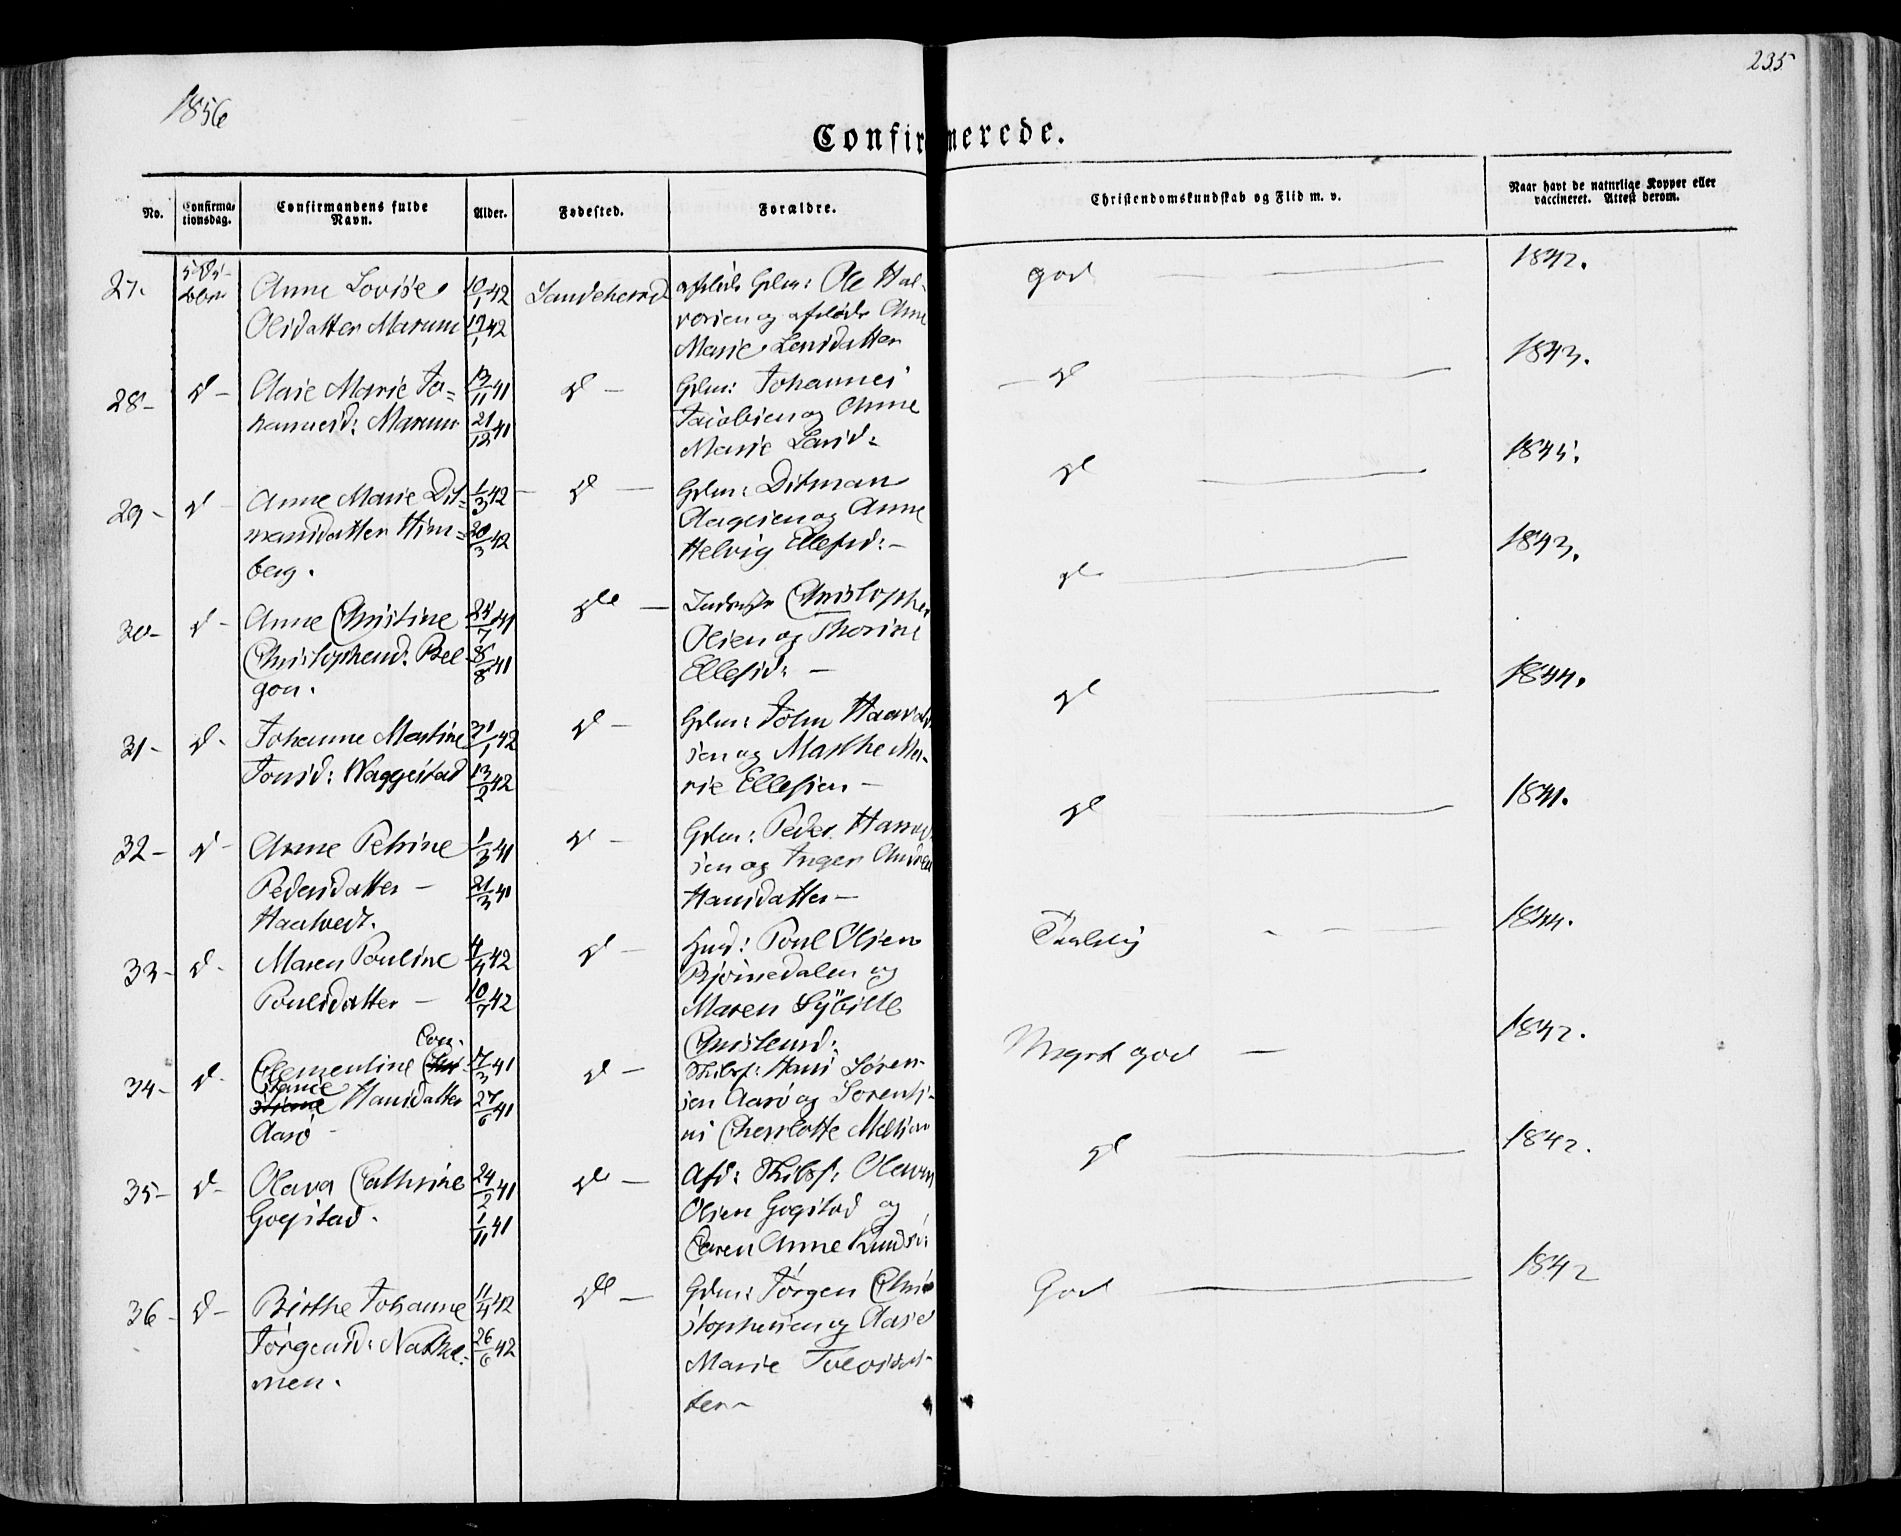 235
1856
Confirmerede.
No.
Confirma-
tionsdag.
Confirmandens fulde
Navn.
Alder.
Fødested.
Forældre.
Christendomskundskab og Flid m. v.
Naar havt de naturlige Kopper eller
vaccineret. Attest derom.
27.
Anne Lovise
Olsdatter Marum
10/1 42
17/1 42
Sandeherred
Gdm: Ole Hal-
vorsen og Anne
Marie Larsdatter
god
1842.
28-
d -
Aase Marie Jo-
hannesd: Marum
13/11 41
21/12 41
d -
Gdm: Johannes
Jacobsen og Anne
Marie Larsd:
d
1843.
29-
d
Anne Marie Dit-
mansdatter Him-
berg.
1/3 42
20/3 42
d -
Gdm: Ditman
Aagesen og Anne
Helvig Ellefsd: -
d
1845.
30-
d -
Anne Christine
Christophersd: Bel-
gen.
24/7 41
8/8 41
do -
Inderste Christopher
Olsen og Thorine
Ellefsd: -
d
1843.
31-
d -
Johanne Martine
Jonsd: Waggestad
31/1 42
13/2 42
d -
Gdm: John Haavald
sen og Marthe Ma-
rie Ellefsen -
d
1844.
32-
d -
Anne Petrine
Pedersdatter -
Haatvedt.
1/3 41
21/3 41
d -
Gdm: Peder
sen og Inger
Hansdatter -
d
1841.
33-
d -
Maren Pouline
Poulsdatter -
4/4 42
10/7 42
d -
Husd: Poul Olsen
Bjørnedalen og
Maren Sÿbille
Christensd:
1844.
34-
d -
Con-
Clementine
stance
Hansdatter
Aarø
17/3 41
27/6 41
d -
Skibsf: Hans Søren-
sen Aarø og Sørenti-
ni Charlotte
Meget god -
1842.
35-
d -
Olava Cathrine
Gogstad.
24/2 41
1/11 41
do -
Afd: Skibsf: Olaves
Olsen Gogstad og
Caren Anne Knuds:
d
1842.
36-
d -
Birthe Johanne
Jørgensd: Nathol-
men.
11/4 42
26/6 42
do -
Gdm: Jørgen Chri-
stophersen og Aase
Marie
ter -
God
1842